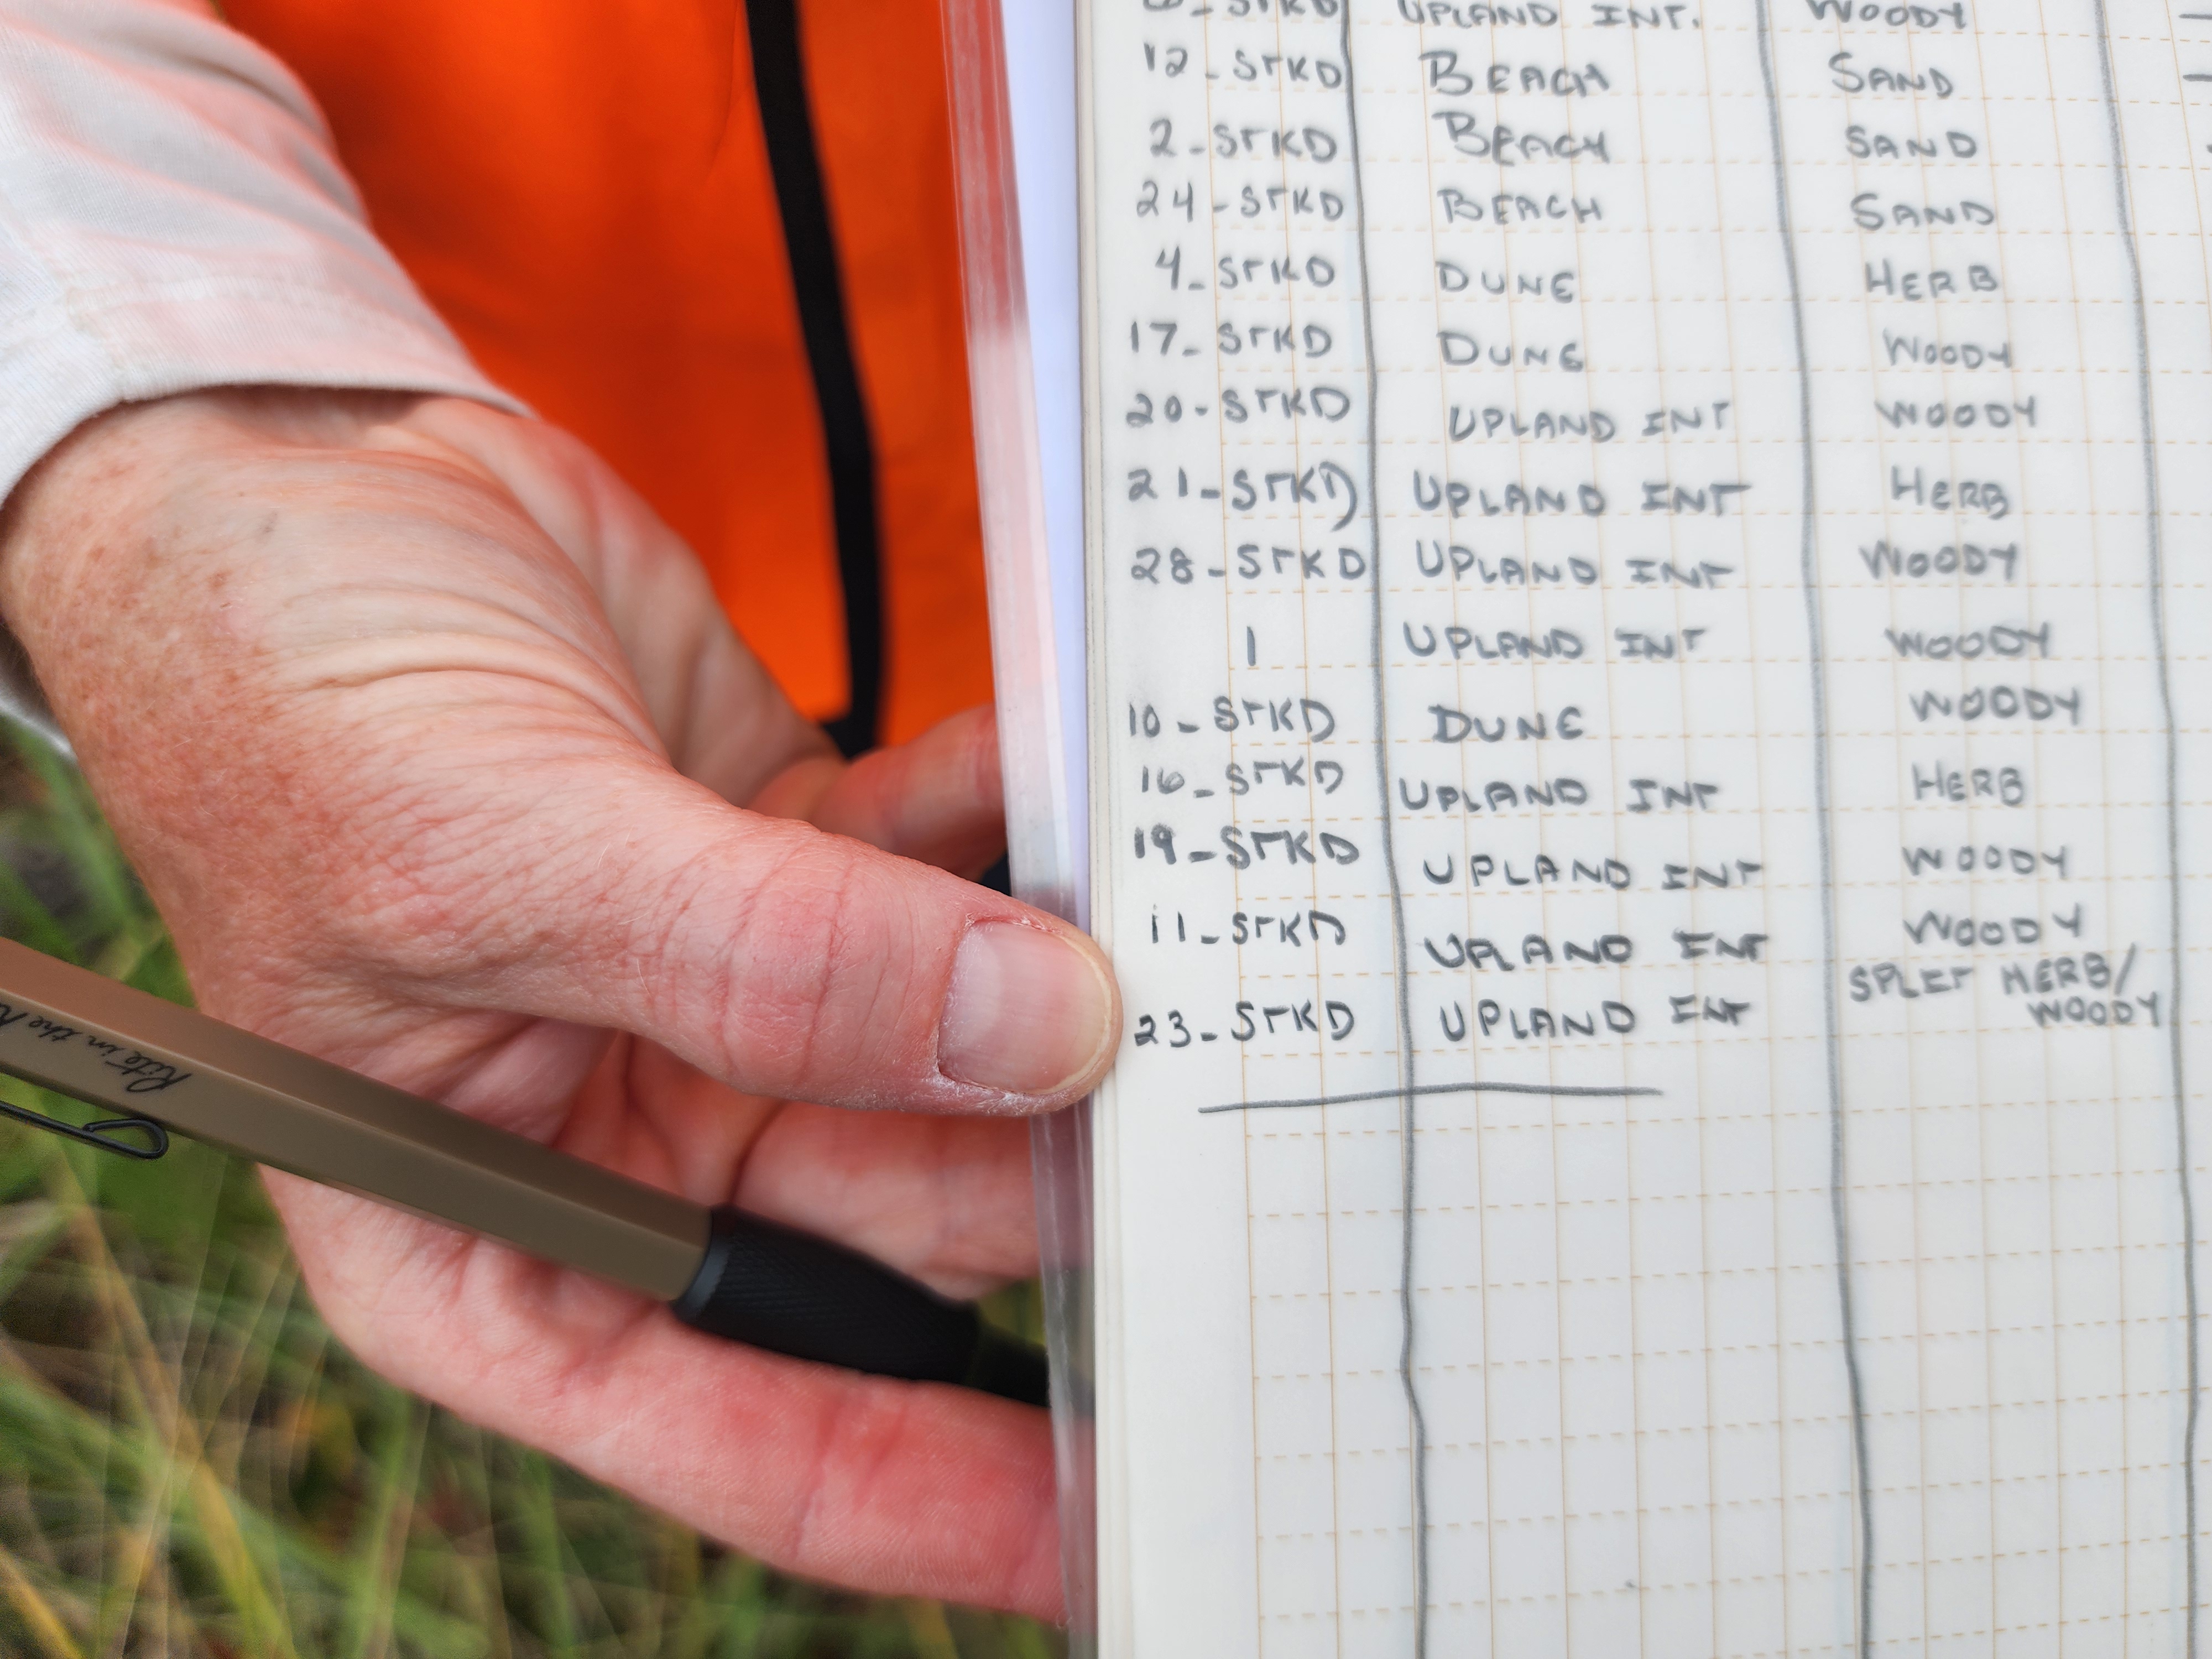 STKD UPLAND INT. WOODY
12 - STKD BEACH SAND
2 - STKD BEACH SAND
24 - STKD BEACH SAND
4 - STKD DUNE HERB
17 - STKD DUNE WOODY
20 - STKD UPLAND INT WOODY
21 - STKD UPLAND INT HERB
28 - STKD UPLAND INT WOODY
1 UPLAND INT WOODY
10 - STKD DUNE WOODY
16 - STKD UPLAND INT HERB
19 - STKD UPLAND INT WOODY
11 - STKD UPLAND INT WOODY
23 - STKD UPLAND INT SPLIT HERB/
WOODY
Rite in the